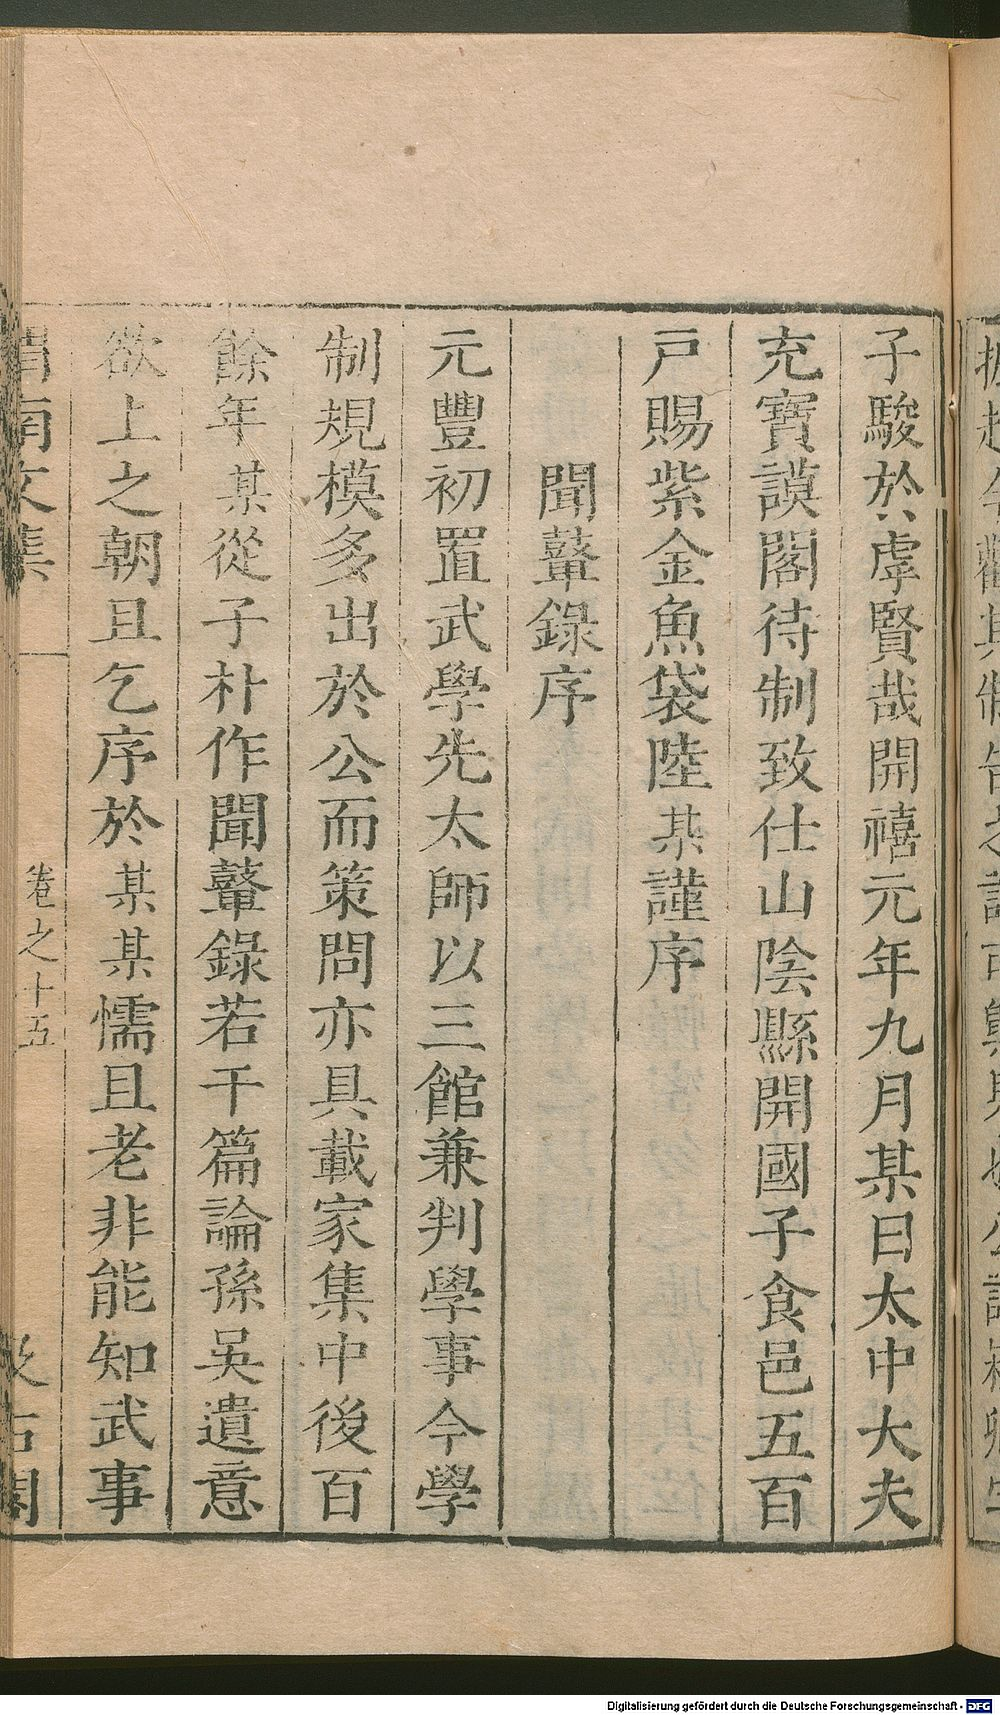 子駿於虖賢哉開禧元年九月某日太中大夫
充寶謨閣待制致仕山陰縣開國子食邑五百
戸賜紫金魚袋陸某謹序
聞鼙錄序
元豐初置武學先太師以三館兼判學事今學
制規模多出於公而策問亦具載家集中後百
餘年某從子朴作聞鼙錄若干篇論孫吳遺意
欲上之朝且乞序於某某懦且老非能知武事
渭南文集 卷之十五 汲古閣
Digitalisierung gefördert durch die Deutsche Forschungsgemeinschaft - DFG